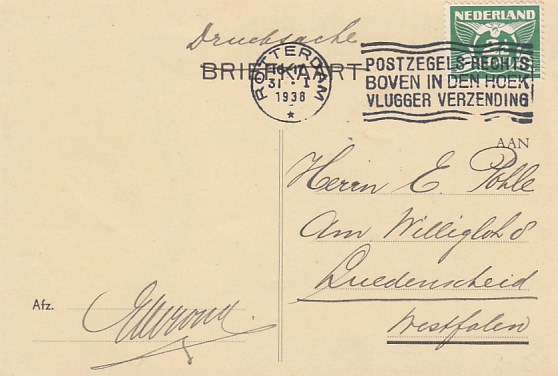 NEDERLAND
Drucksache
BRIEFKAART
ROTTERDAM
31 · I
1938
POSTZEGELS RECHTS
BOVEN IN DEN HOEK
VLUGGER VERZENDING
AAN
Herrn E. Pohle
Am Willigloh 8
Luedenscheid
Westfalen
Afz.